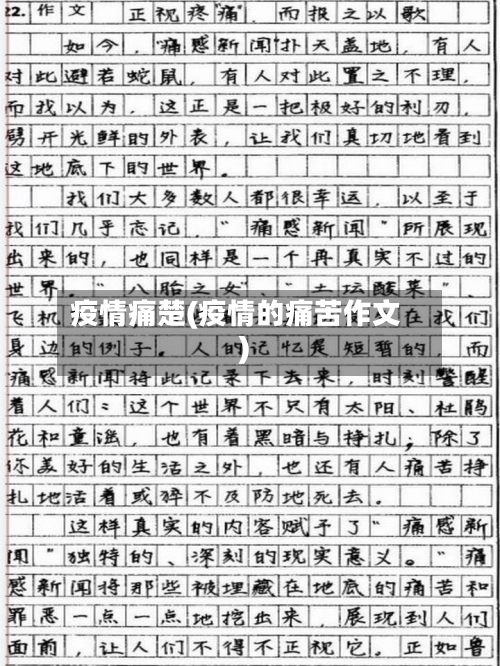 22.作文 正视疼"痛",而报之以歌
如今,"痛感新闻"扑天盖地,有人
对此避若蛇鼠,有人对此置之不理,
而我以为,这正是一把极好的利刃,
劈开光鲜的外表,让我们真切地看到
这地底下的世界。
我们大多数人都很幸运,以至于
我们几乎忘记,"痛感新闻"所展现
出来的,也同样是一个再真实不过的
世界。"八胎之女"、"土坛酸菜"、
疫情痛楚(疫情的痛苦作文
)
飞机 在我们
身边的例子。人的记忆是短暂的,而
"痛感新闻"将此记录下去来,时刻警醒
着人们:这个世界不只有太阳、杜鹃
花和童谣,也有着黑暗与挣扎;除了
你美好的生活之外,也还有人痛苦挣
扎地活着或猝不及防地死去。
这样真实的内容赋予了"痛感新
闻"独特的、深刻的现实意义。"痛
感新闻将那些被埋藏在地底的痛苦和
罪恶一点一点地挖出来,展现到人们
面前,让人们不得不正视它。正如鲁